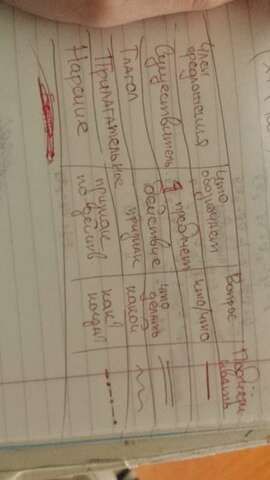 Член
предложения
что
обозначает
Вопрос
Существитель
предмет
кто/что
Глагол
действие
что
делать
Прилагательное
признак
какой
Наречие
признак
по действ
как?
когда?